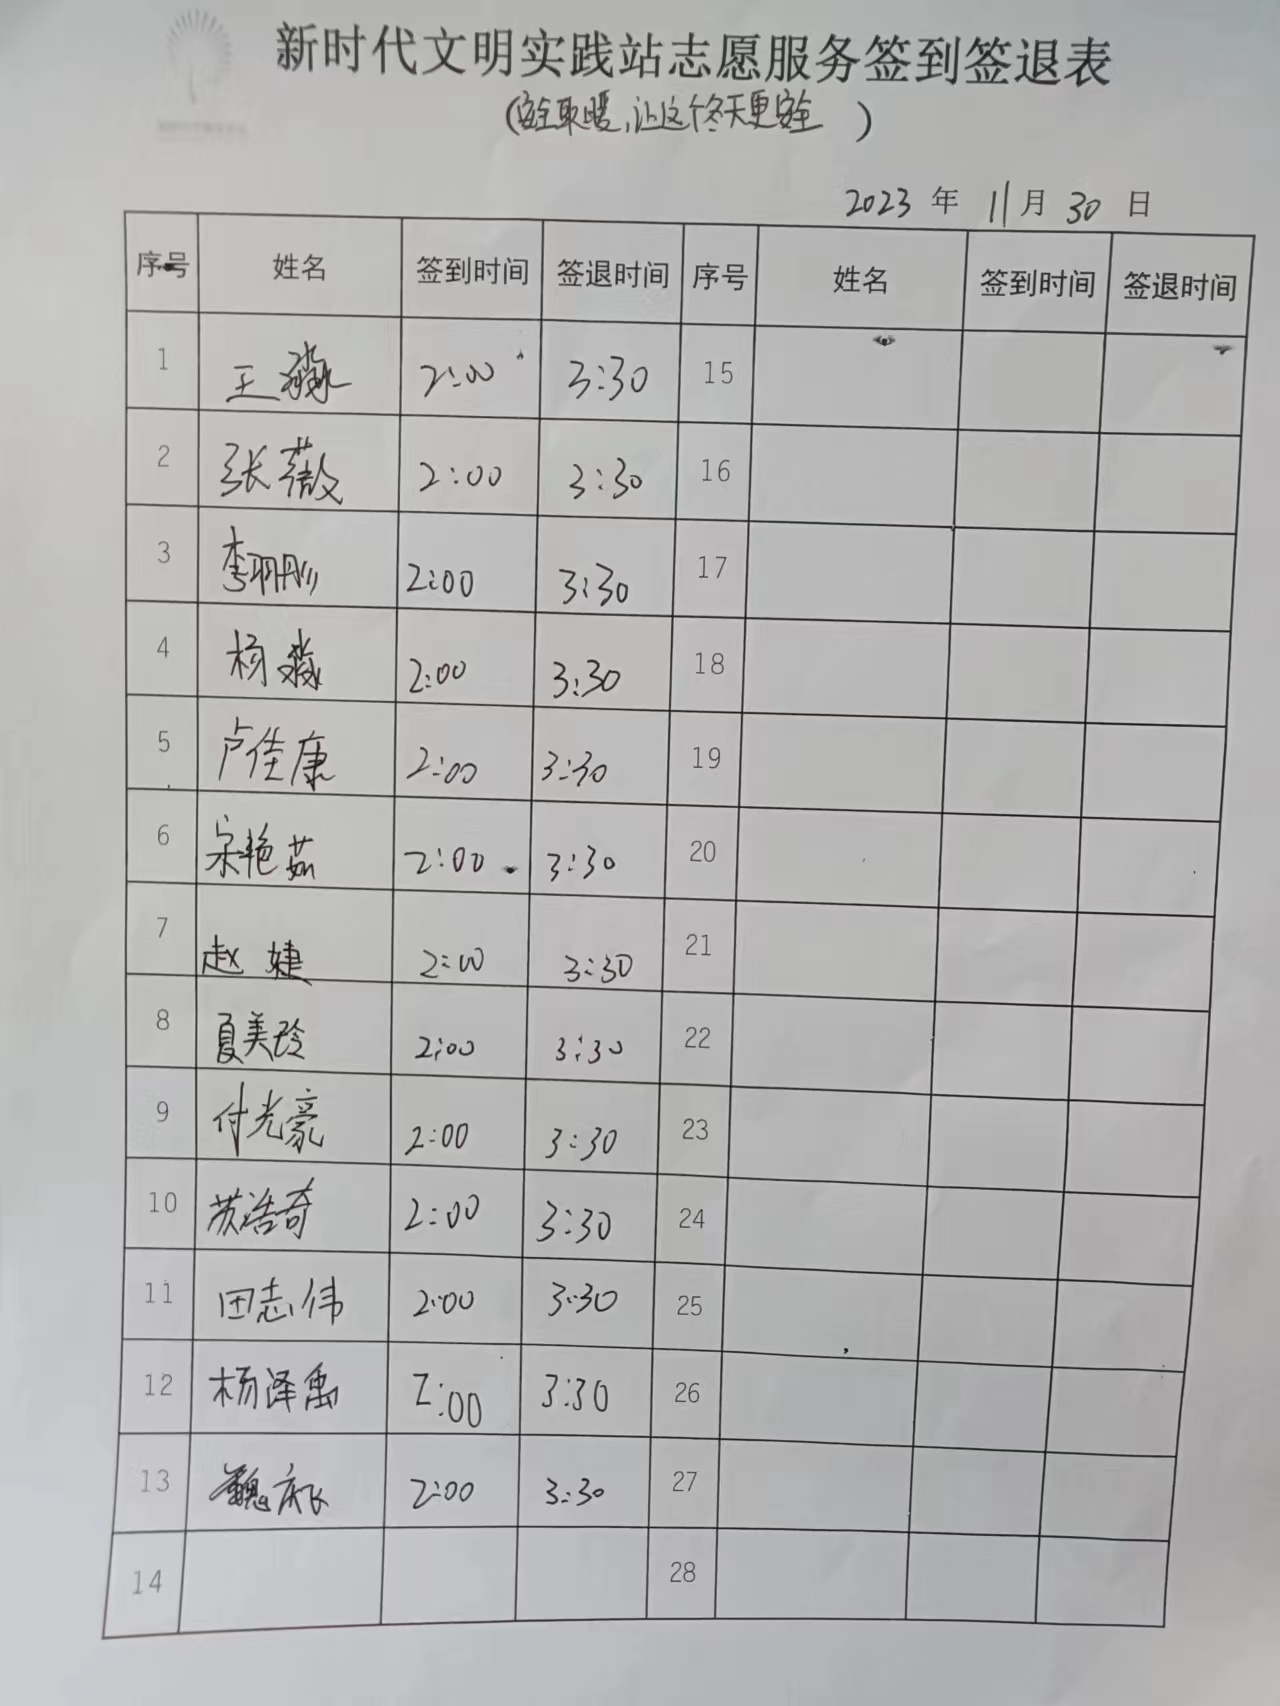 新时代文明实践站志愿服务签到签退表
(安全取暖,让这个冬天更安全)
2023 年 11 月 30 日
序号 姓名 签到时间 签退时间 序号 姓名 签到时间 签退时间
1 王淼 2:00 3:30 15
2 张薇 2:00 3:30 16
3 李珊珊 2:00 3:30 17
4 杨淼 2:00 3:30 18
5 卢佳康 2:00 3:30 19
6 宋艳茹 2:00 3:30 20
7 赵婕 2:00 3:30 21
8 夏美玲 2:00 3:30 22
9 付光豪 2:00 3:30 23
10 苏浩奇 2:00 3:30 24
11 田志伟 2:00 3:30 25
12 杨泽禹 2:00 3:30 26
13 2:00 3:30 27
14 28